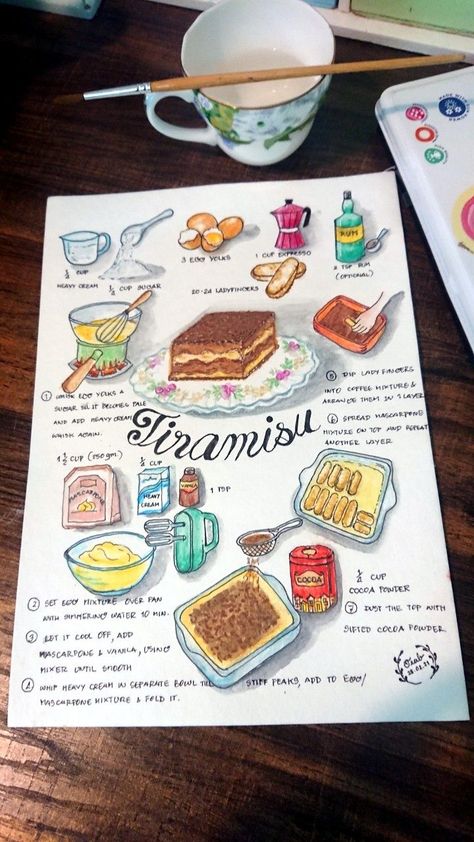 3 EGG YOLKS
1 CUP ESPRESSO
RUM
2 TSP RUM
(OPTIONAL)
1/2 CUP
HEAVY CREAM
1/2 CUP SUGAR
20-24 LADYFINGERS
① WHISK EGG YOLKS &
SUGAR TILL IT BECOMES PALE
AND ADD HEAVY CREAM
WHISK AGAIN.
⑤ DIP LADY FINGERS
INTO COFFEE MIXTURE &
ARRANGE THEM IN 1 LAYER
⑥ SPREAD MASCARPONE
MIXTURE ON TOP AND REPEAT
ANOTHER LAYER
Tiramisu
1 1/2 CUP (350 gm.)
MASCARPONE
CUP
HEAVY
CREAM
VANILLA
1 TSP
② SET EGG MIXTURE OVER PAN
WITH SIMMERING WATER 10 MIN.
③ LET IT COOL OFF, ADD
MASCARPONE & VANILA, USING
MIXER UNTIL SMOOTH
④ WHIP HEAVY CREAM IN SEPARATE BOWL TILL STIFF PEAKS, ADD TO EGG/
MASCARPONE MIXTURE & FOLD IT.
COCOA
CUP
COCOA POWDER
⑦ DUST THE TOP WITH
SIFTED COCOA POWDER